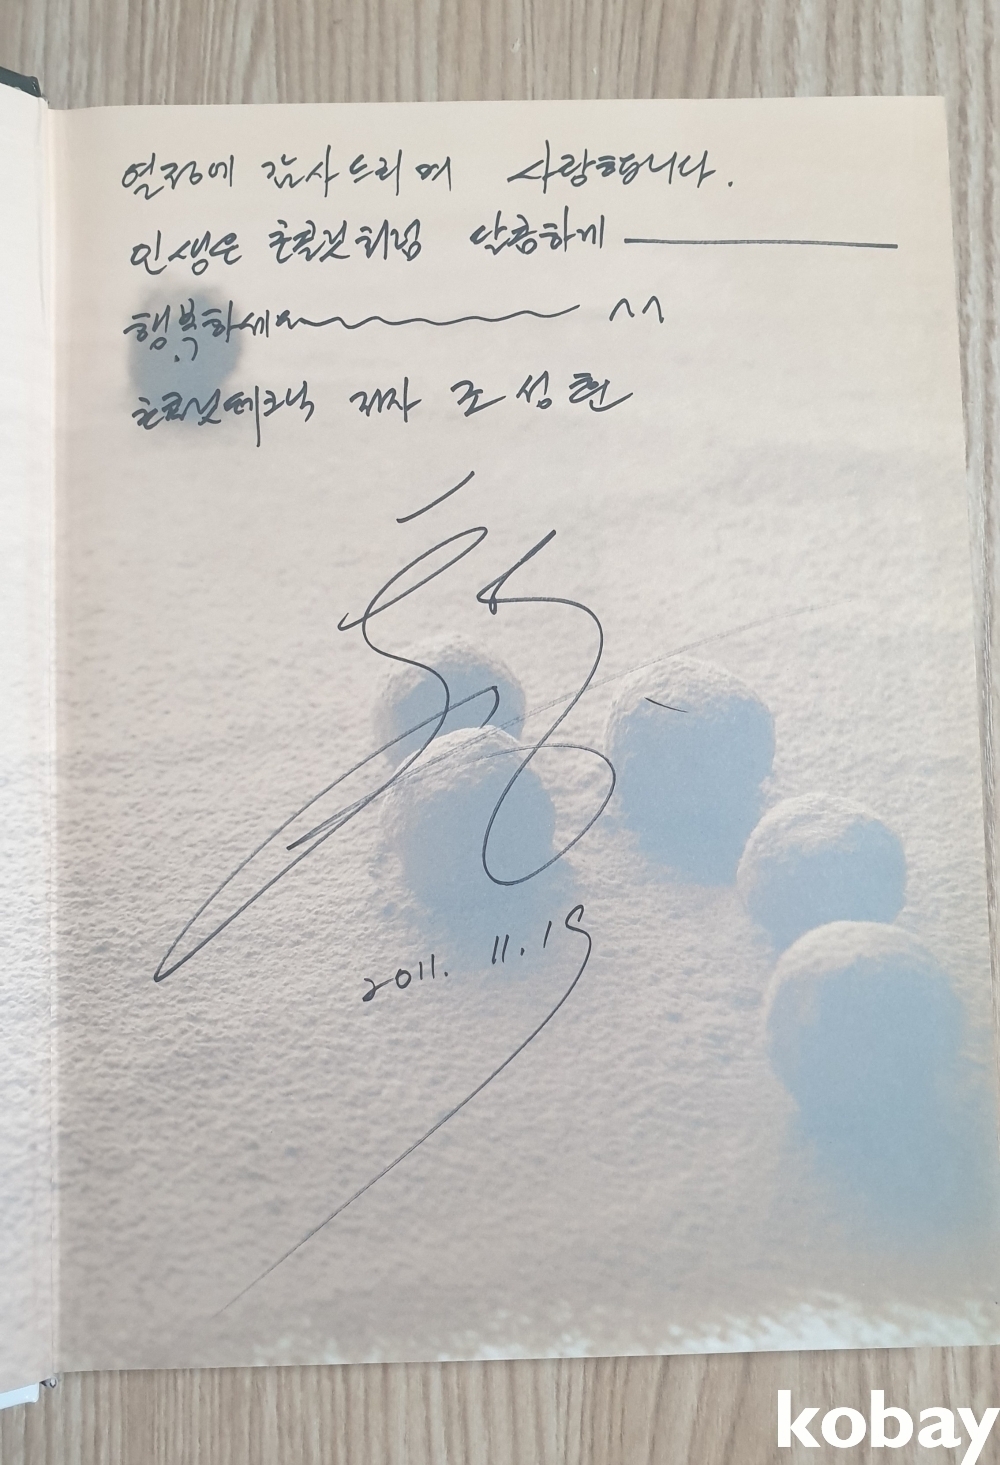 열정에 감사드리며 사랑합니다.
인생은 초콜릿처럼 달콤하게
행복하세요 ^^
초콜릿테크닉 저자 조성현
2011. 11. 19
kobay